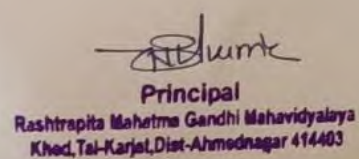 Principal
Rashtrapita Mahatma Gandhi Mahavidyalaya
Khed,Tal-Karjat,Dist-Ahmednagar 414403